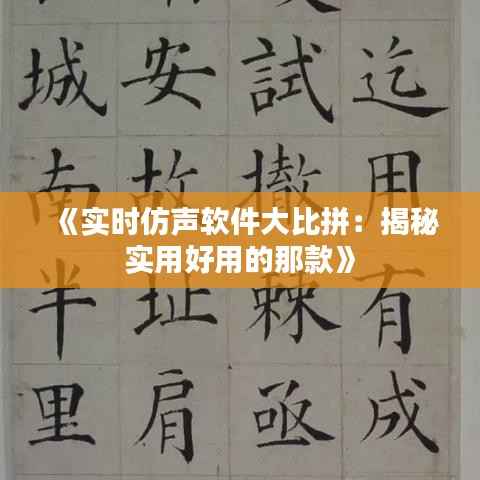 《实时仿声软件大比拼：揭秘
实用好用的那款》
迄用有成
試撤棘亟
安故址肩
城南半里